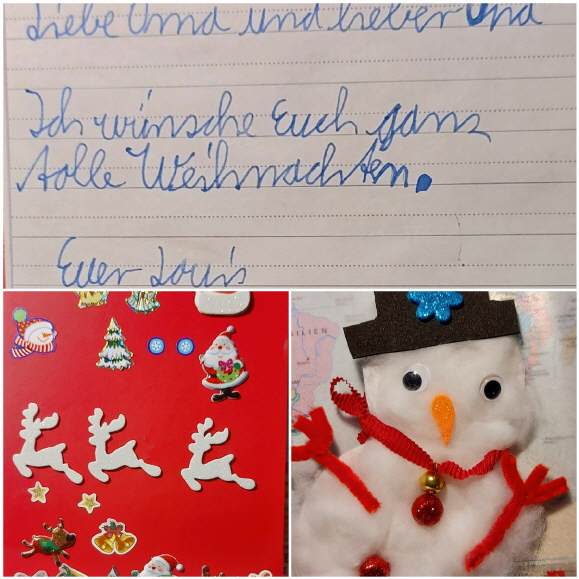 Liebe Oma und lieber Opa
Ich wünsche Euch ganz
tolle Weihnachten.
Euer Louis
ILIEN